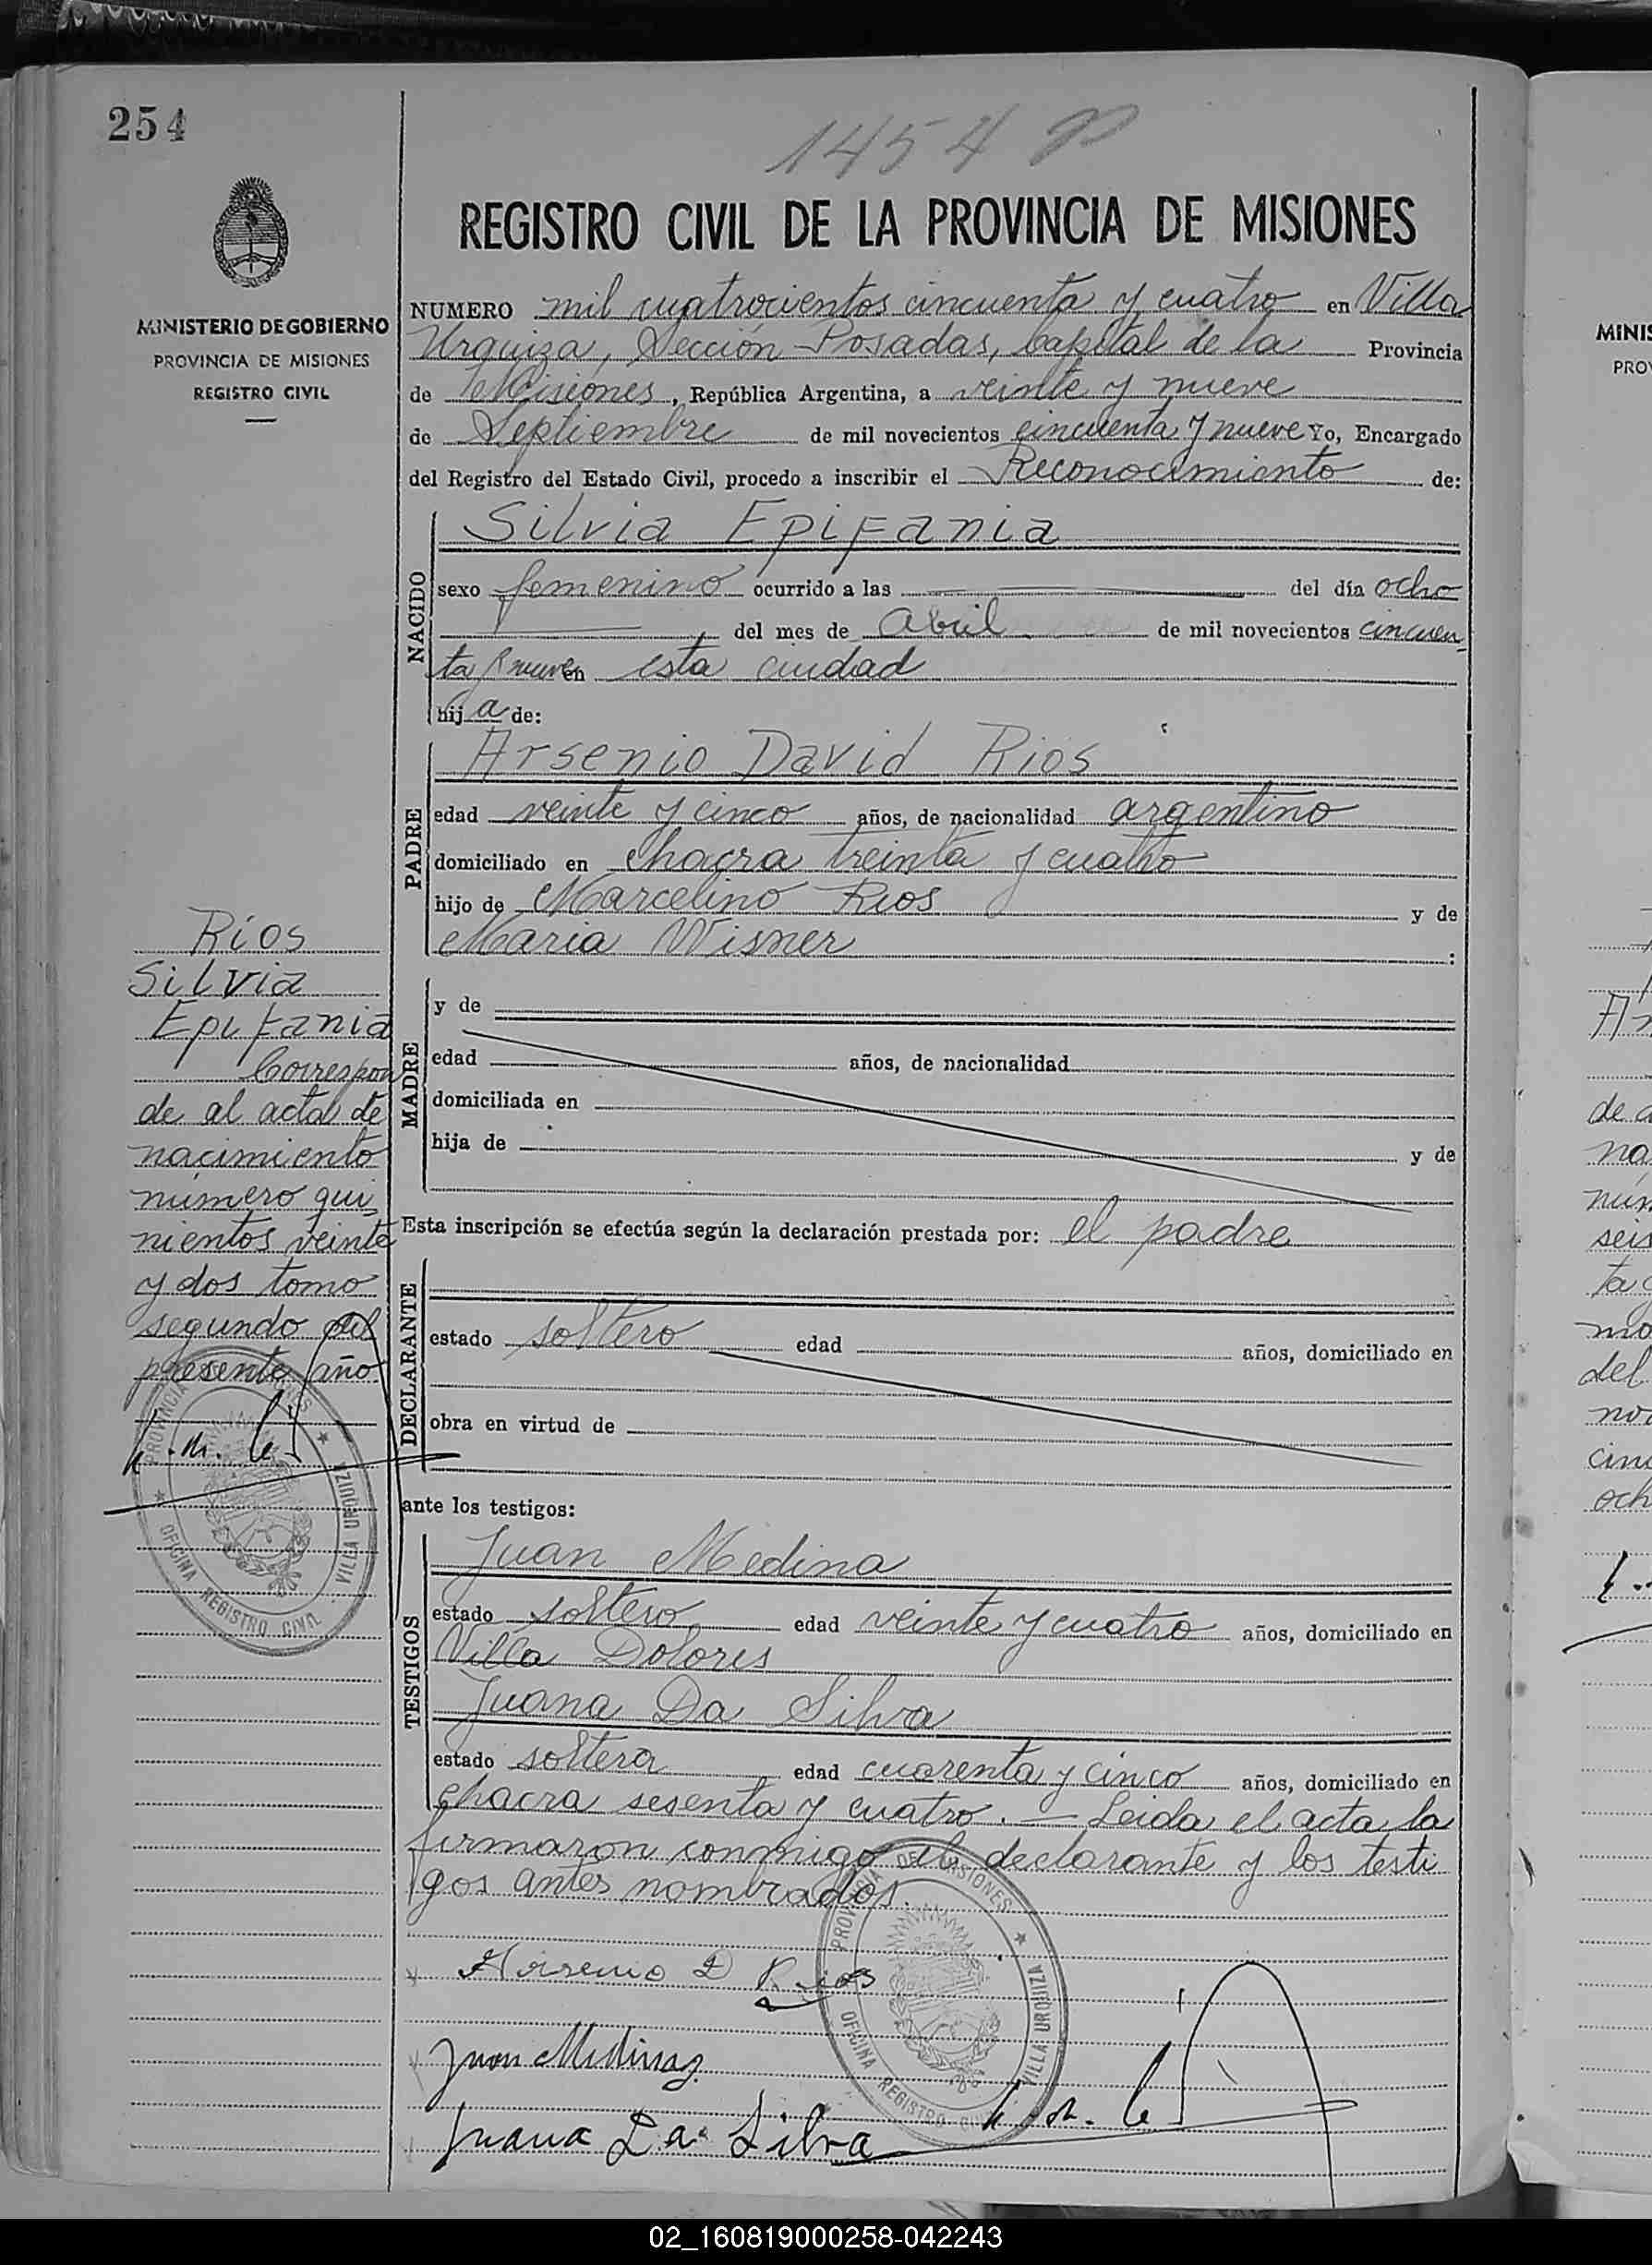 254
1454
MINISTERIO DE GOBIERNO
PROVINCIA DE MISIONES
REGISTRO CIVIL
REGISTRO CIVIL DE LA PROVINCIA DE MISIONES
NUMERO mil cuatrocientos cincuenta y cuatro en Villa
Urquiza, Sección Posadas, Capital de la Provincia
de Misiones, República Argentina, a veinte y nueve
de Septiembre de mil novecientos cincuenta y nueve Yo, Encargado
del Registro del Estado Civil, procedo a inscribir el Reconocimiento de:
NACIDO
Silvia Epifania
sexo femenino ocurrido a las del día ocho
, del mes de Abril de mil novecientos cincuen
ta y nueve en esta ciudad
hija de:
PADRE
Arsenio David Rios
edad veinte y cinco años, de nacionalidad argentino
domiciliado en chacra treinta y cuatro
hijo de Marcelino Rios y de
Maria Wisner :
MADRE
y de
edad años, de nacionalidad
domiciliada en
hija de y de
Esta inscripción se efectúa según la declaración prestada por: el padre
DECLARANTE
estado soltero edad años, domiciliado en
obra en virtud de
ante los testigos:
TESTIGOS
Juan Medina
estado soltero edad veinte y cuatro años, domiciliado en
Villa Dolores
Juana Da Silva
estado soltera edad cuarenta y cinco años, domiciliado en
chacra sesenta y cuatro. — Leida el acta la
firmaron conmigo el declarante y los testi
gos antes nombrados.
Arsenio D Rios
Juan Medina
Juana Da Silva
PROVINCIA DE MISIONES ★ VILLA URQUIZA
OFICINA REGISTRO CIVIL
Ríos
Silvia
Epifania
Correspon
de al acta de
nacimiento
número qui
nientos veinte
y dos tomo
segundo del
presente año
PROVINCIA MISIONES ★ VILLA URQUIZA ★
OFICINA REGISTRO CIVIL
MINIS
PRO
de a
na
núm
seis
ta
mo
del
no
cinc
och
02_160819000258-042243